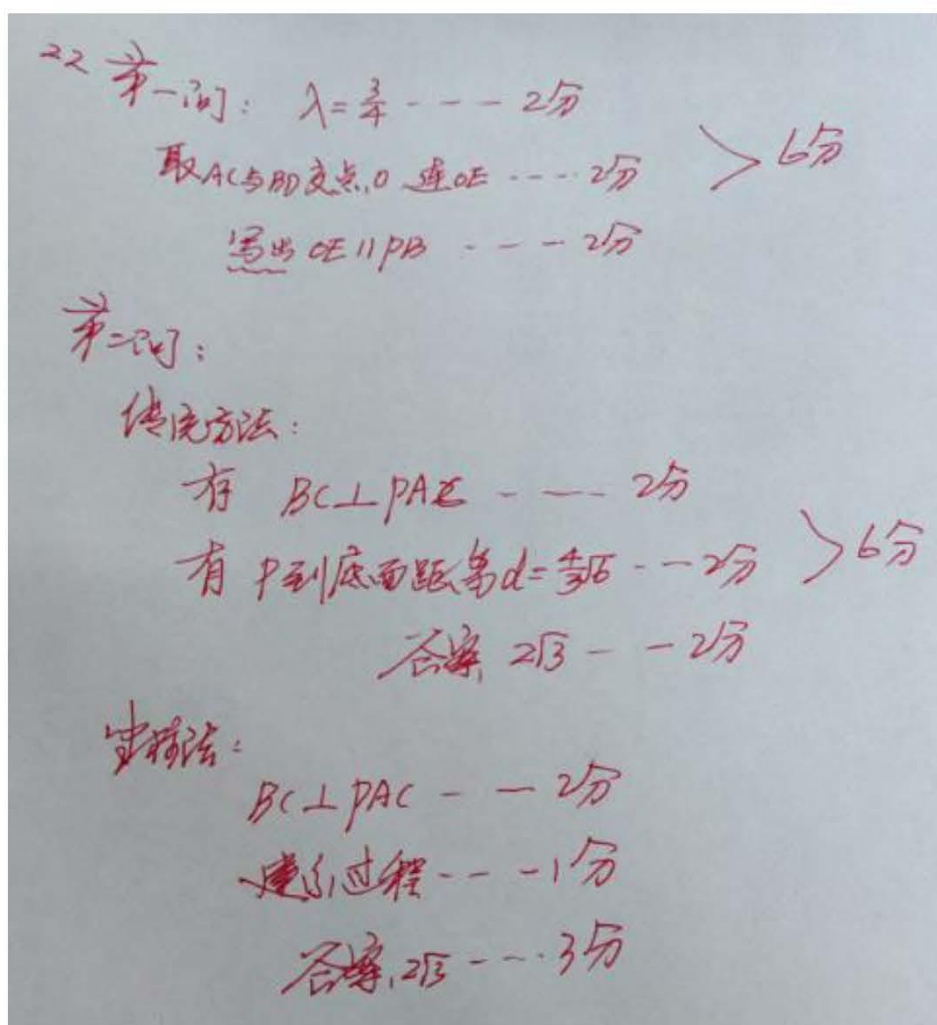 22 第一问: λ=3/4 ---- 2分
取AC与BD交点O 连OE ---- 2分 > 6分
写出 OE∥PB ---- 2分
第二问:
传统方法:
有 BC⊥PAC --- 2分
有 P到底面距离d=4/3√6 --- 2分 > 6分
答案, 2√3 -- 2分
坐标法:
BC⊥PAC -- 2分
建系过程 --- 1分
答案, 2√3 --- 3分